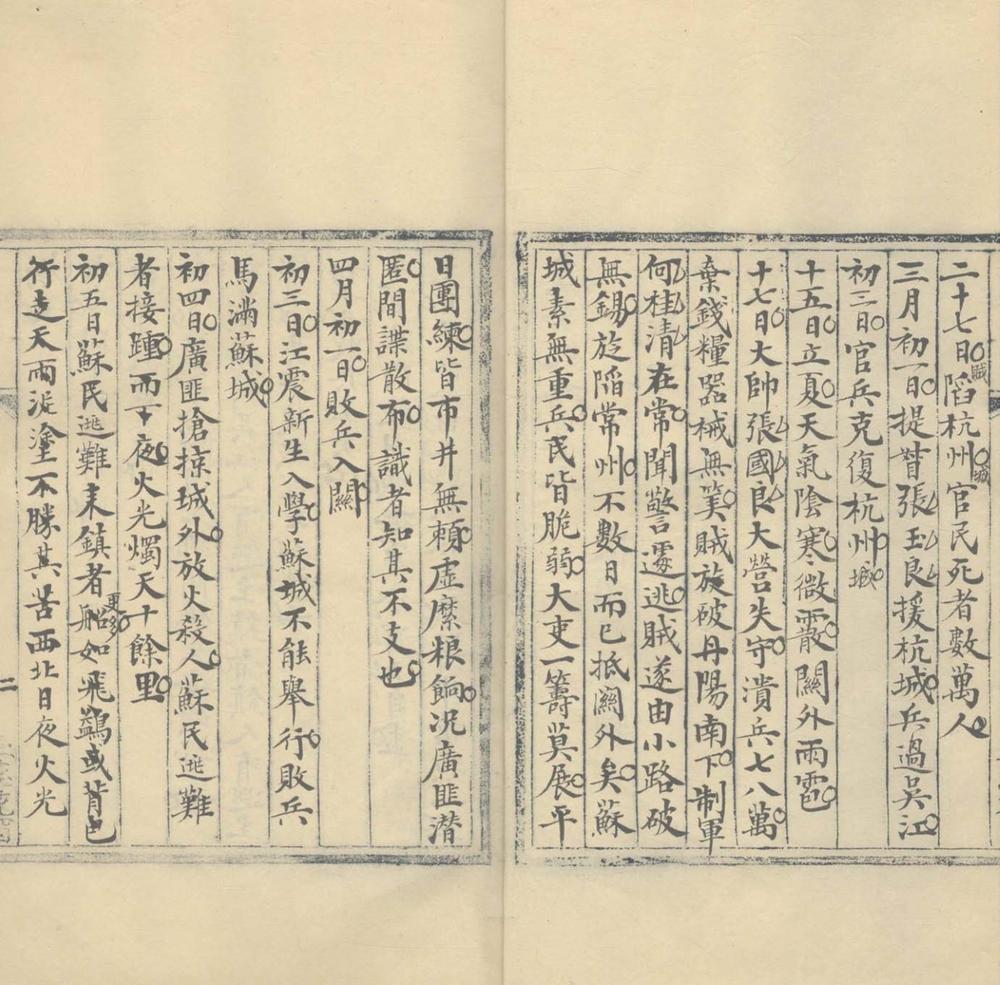 二十七日賊陷杭州城官民死者數萬人
三月初一日提督張玉良援杭城兵過吳江
初三日官兵克復杭州城
十五日立夏天氣陰寒微霰關外雨雹
十七日大帥張國良大營失守潰兵七八萬
棄錢糧器械無筭賊旋破丹陽南下制軍
何桂清在常聞警遽逃賊遂由小路破
無錫旋陷常州不數日而已抵關外矣蘇
城素無重兵民皆脆弱大吏一籌莫展平
日團練皆市井無賴虛縻粮餉况廣匪潛
匿間諜散布識者知其不支也
四月初一日敗兵入關
初三日江震新生入學蘇城不能舉行敗兵
馬滿蘇城
初四日廣匪搶掠城外放火殺人蘇民逃難
者接踵而下夜火光燭天十餘里
初五日蘇民逃難末鎮者更多船如飛鷁或背包
行走天雨泥塗不勝其苦西北日夜火光
二